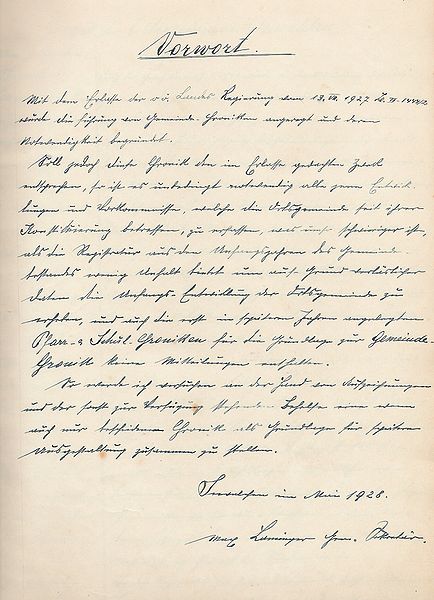 Vorwort.
Mit dem Erlasse der o.ö. Landes Regierung vom 13. VII. 1927
wurde die Führung von Gemeinde-Chroniken angeregt und deren
Notwendigkeit begründet.
Soll jedoch diese Chronik den im Erlasse gedachten Zweck
entsprechen, so ist es unbedingt notwendig alle jene Entwik-
lungen und Vorkommnisse, welche die Ortsgemeinde seit ihrer
Konstituierung betreffen, zu erfassen, was umso schwieriger ist,
als die Registratur aus den Anfangsjahren des Gemeinde-
bestandes wenig Anhalt bietet um auf Grund verlässlicher
Daten die Anfangs-Entwicklung der Ortsgemeinde zu
erheben, und auch die erst in spätern Jahren angelegten
Pfarr- & Schul-Chroniken für die Grundlage zur Gemeinde-
Chronik keine Mitteilungen enthalten.
So werde ich versuchen an der Hand von Aufzeichnungen
und der sonst zur Verfügung stehenden Behelfe eine wenn
auch nur bescheidene Chronik als Grundlage für spätere
Ausgestaltung zusammen zu stellen.
Seewalchen im Mai 1928.
Max Gem. Sekretär.